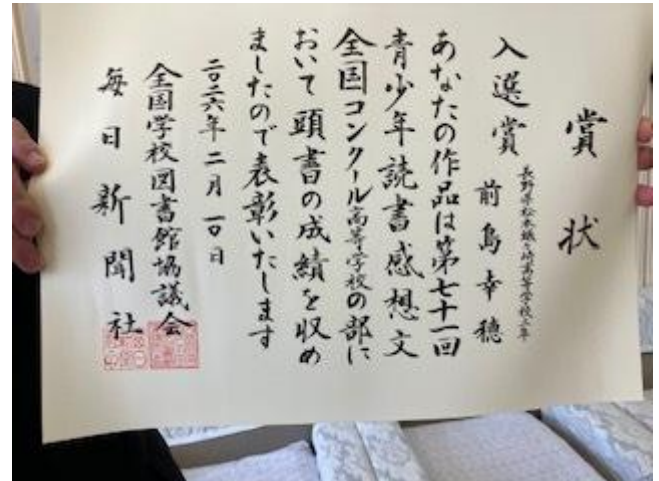 賞状
入選賞
長野県松本蟻ヶ崎高等学校二年
前島幸穂
あなたの作品は第七十一回
青少年読書感想文
全国コンクール高等学校の部に
おいて頭書の成績を収め
ましたので表彰いたします
二〇二六年二月一〇日
全国学校図書館協議会
毎日新聞社